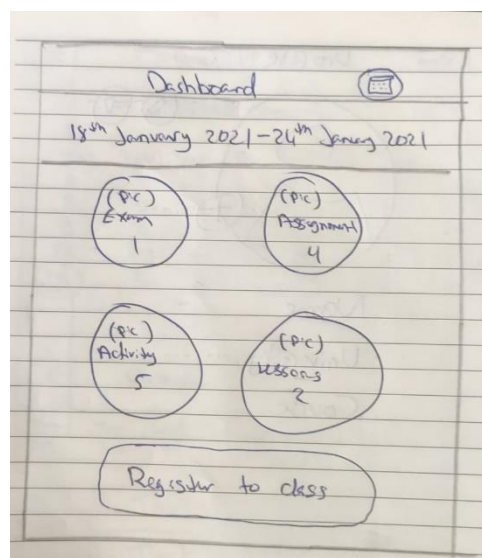 Dashboard
18th January 2021 - 24th January 2021
(Pic)
Exam
1
(Pic)
Assignment
4
(Pic)
Activity
5
(Pic)
Lessons
2
Register to class